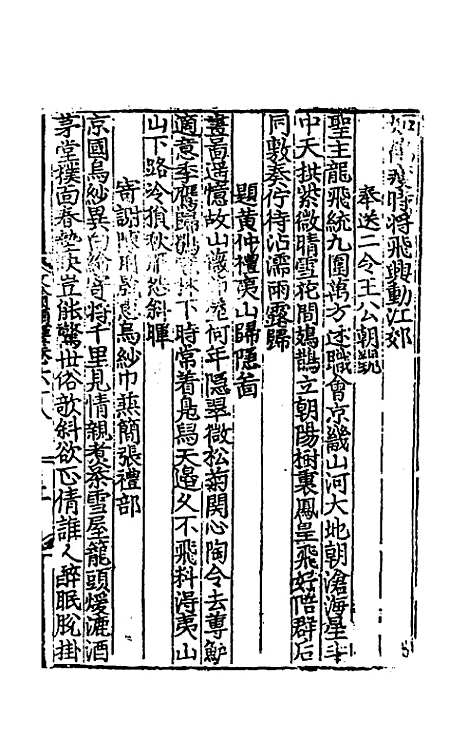 時將飛興動江郊
奉送二令王公朝覲
聖主龍飛統九圍萬方述職會京畿山河大地朝滄海星斗
中天拱紫微晴雪花間鳷鵲立朝陽樹裏鳳呈飛好陪群后
同敷奏佇待沾濡雨露歸
題黃仲禮夷山歸隱啚
畫啚遥憶故山何年隱翠微松菊関心陶令去蓴鱸
適意季鷹歸下時常着鳬舄天邊久不飛料淂夷山
山下路冷猿秋怨斜暉
寄謝惠烏紗巾蕪簡張禮部
京國烏紗異白寄將千里見情親煮茶雪屋籠頭煖漉酒
茅堂撲面春墊豈能驚世俗欹斜欲正倩誰人醉眠脫掛